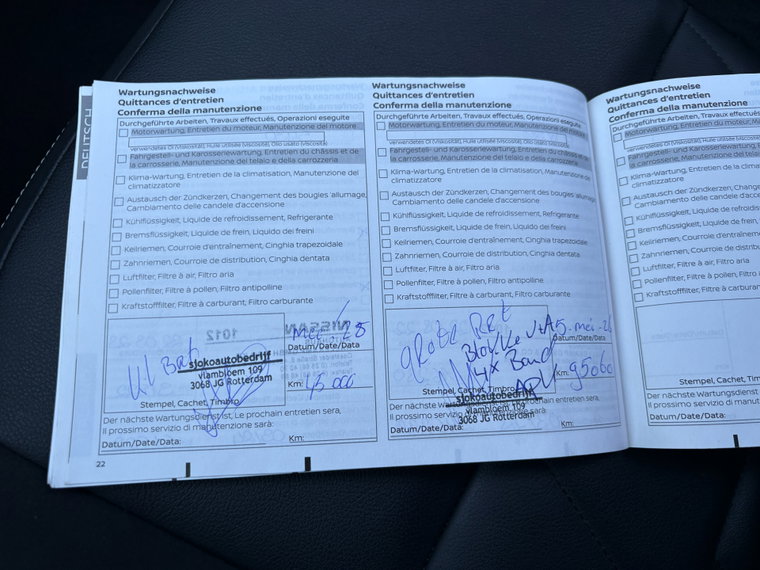 DEUTSCH
Wartungsnachweise
Quittances d'entretien
Conferma della manutenzione
Durchgeführte Arbeiten, Travaux effectués, Operazioni eseguite
Motorwartung, Entretien du moteur, Manutenzione del motore
verwendetes Öl (Viskosität), Huile utilisée (Viscosité), Olio usato (Viscosità)
Fahrgestell- und Karosseriewartung, Entretien du châssis et de
la carrosserie, Manutenzione del telaio e della carrozzeria
Klima-Wartung, Entretien de la climatisation, Manutenzione del
climatizzatore
Austausch der Zündkerzen, Changement des bougies 'allumage,
Cambiamento delle candele d'accensione
Kühlflüssigkeit, Liquide de refroidissement, Refrigerante
Bremsflüssigkeit, Liquide de frein, Liquido dei freini
Keilriemen, Courroie d'entraînement, Cinghia trapezoidale
Zahnriemen, Courroie de distribution, Cinghia dentata
Luftfilter, Filtre à air, Filtro aria
Pollenfilter, Filtre à pollen, Filtro antipolline
Kraftstofffilter, Filtre à carburant, Filtro carburante
sjokoautobedrijf
vlambloem 109
3068 JG Rotterdam
Stempel, Cachet, Timbro
Datum/Date/Data
Km: 45 000
Der nächste Wartungsdienst ist, Le prochain entretien sera,
Il prossimo servizio di manutenzione sarà:
Datum/Date/Data: Km:
22
Wartungsnachweise
Quittances d'entretien
Conferma della manutenzione
Durchgeführte Arbeiten, Travaux effectués, Operazioni eseguite
Motorwartung, Entretien du moteur, Manutenzione del motore
verwendetes Öl (Viskosität), Huile utilisée (Viscosité), Olio usato (Viscosità)
Fahrgestell- und Karosseriewartung, Entretien du châssis et de
la carrosserie, Manutenzione del telaio e della carrozzeria
Klima-Wartung, Entretien de la climatisation, Manutenzione del
climatizzatore
Austausch der Zündkerzen, Changement des bougies 'allumage,
Cambiamento delle candele d'accensione
Kühlflüssigkeit, Liquide de refroidissement, Refrigerante
Bremsflüssigkeit, Liquide de frein, Liquido dei freini
Keilriemen, Courroie d'entraînement, Cinghia trapezoidale
Zahnriemen, Courroie de distribution, Cinghia dentata
Luftfilter, Filtre à air, Filtro aria
Pollenfilter, Filtre à pollen, Filtro antipolline
Kraftstofffilter, Filtre à carburant, Filtro carburante
grote Bet
Blokke V+A 5-mei-26
4x Band
APK
Datum/Date/Data
Km: 95060
Stempel, Cachet, Timbro
sjokoautobedrijf
vlambloem 109
3068 JG Rotterdam
Der nächste Wartungsdienst ist, Le prochain entretien sera,
Il prossimo servizio di manutenzione sarà:
Datum/Date/Data: Km:
Wartungsnachweise
Quittances d'entretien
Conferma della manutenzione
Durchgeführte Arbeiten, Travaux
Motorwartung, Entretien du moteur,
Fahrgestell- und Karosseriewartung,
la carrosserie, Manutenzione del telaio e
Klima-Wartung, Entretien de la
climatizzatore
Austausch der Zündkerzen,
Cambiamento delle candele
Kühlflüssigkeit, Liquide de
Bremsflüssigkeit, Liquide de frein,
Keilriemen, Courroie
Zahnriemen, Courroie de
Luftfilter, Filtre à air, Filtro aria
Pollenfilter, Filtre à pollen, Filtro
Kraftstofffilter, Filtre à carburant,
Stempel, Cachet,
Der nächste Wartungsdienst
Il prossimo servizio di
Datum/Date/Data: